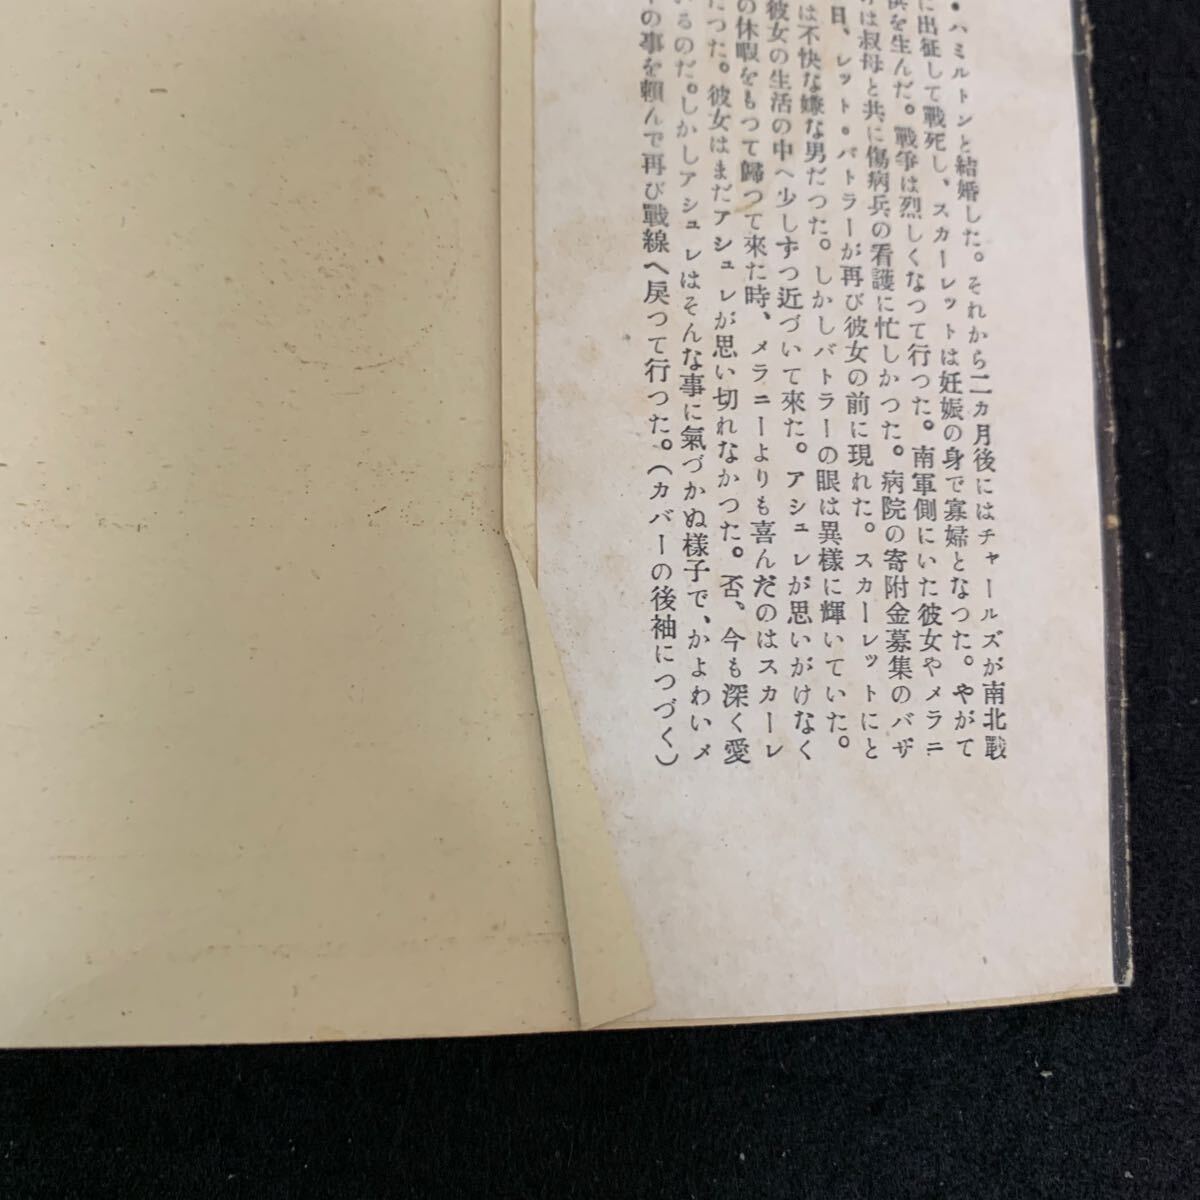 ・ハミルトンと結婚した。それから二カ月後にはチャールズが南北戰
に出征して戰死し、スカーレットは妊娠の身で寡婦となつた。やがて
供を生んだ。戰爭は烈しくなつて行つた。南軍側にいた彼女やメラニ
は叔母と共に傷病兵の看護に忙しかつた。病院の寄附金募集のバザ
日、レット・バトラーが再び彼女の前に現れた。スカーレットにと
は不快な嫌な男だつた。しかしバトラーの眼は異樣に輝いていた。
彼女の生活の中へ少しずつ近づいて來た。アシュレが思いがけなく
の休暇をもつて歸つて來た時、メラニーよりも喜んだのはスカーレ
だつた。彼女はまだアシュレが思い切れなかつた。否、今も深く愛
いるのだ。しかしアシュレはそんな事に氣づかぬ樣子で、かよわいメ
の事を賴んで再び戰線へ戾つて行つた。（カバーの後袖につづく）